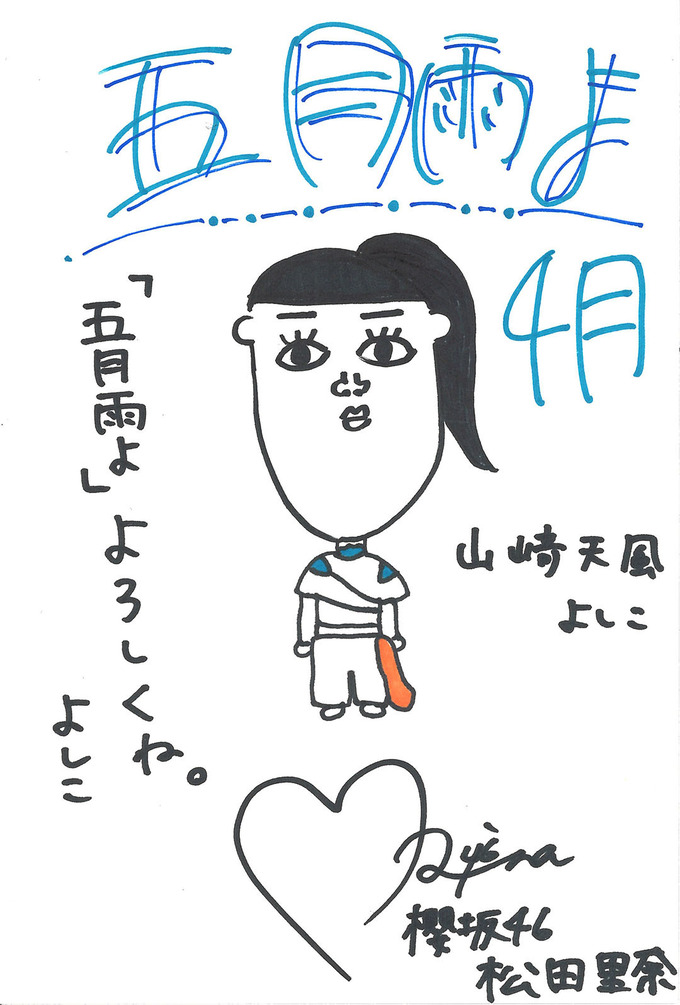 五月雨よ
4月
「五月雨よ」よろしくね。
よしこ
山﨑天風
よしこ
櫻坂46
松田里奈